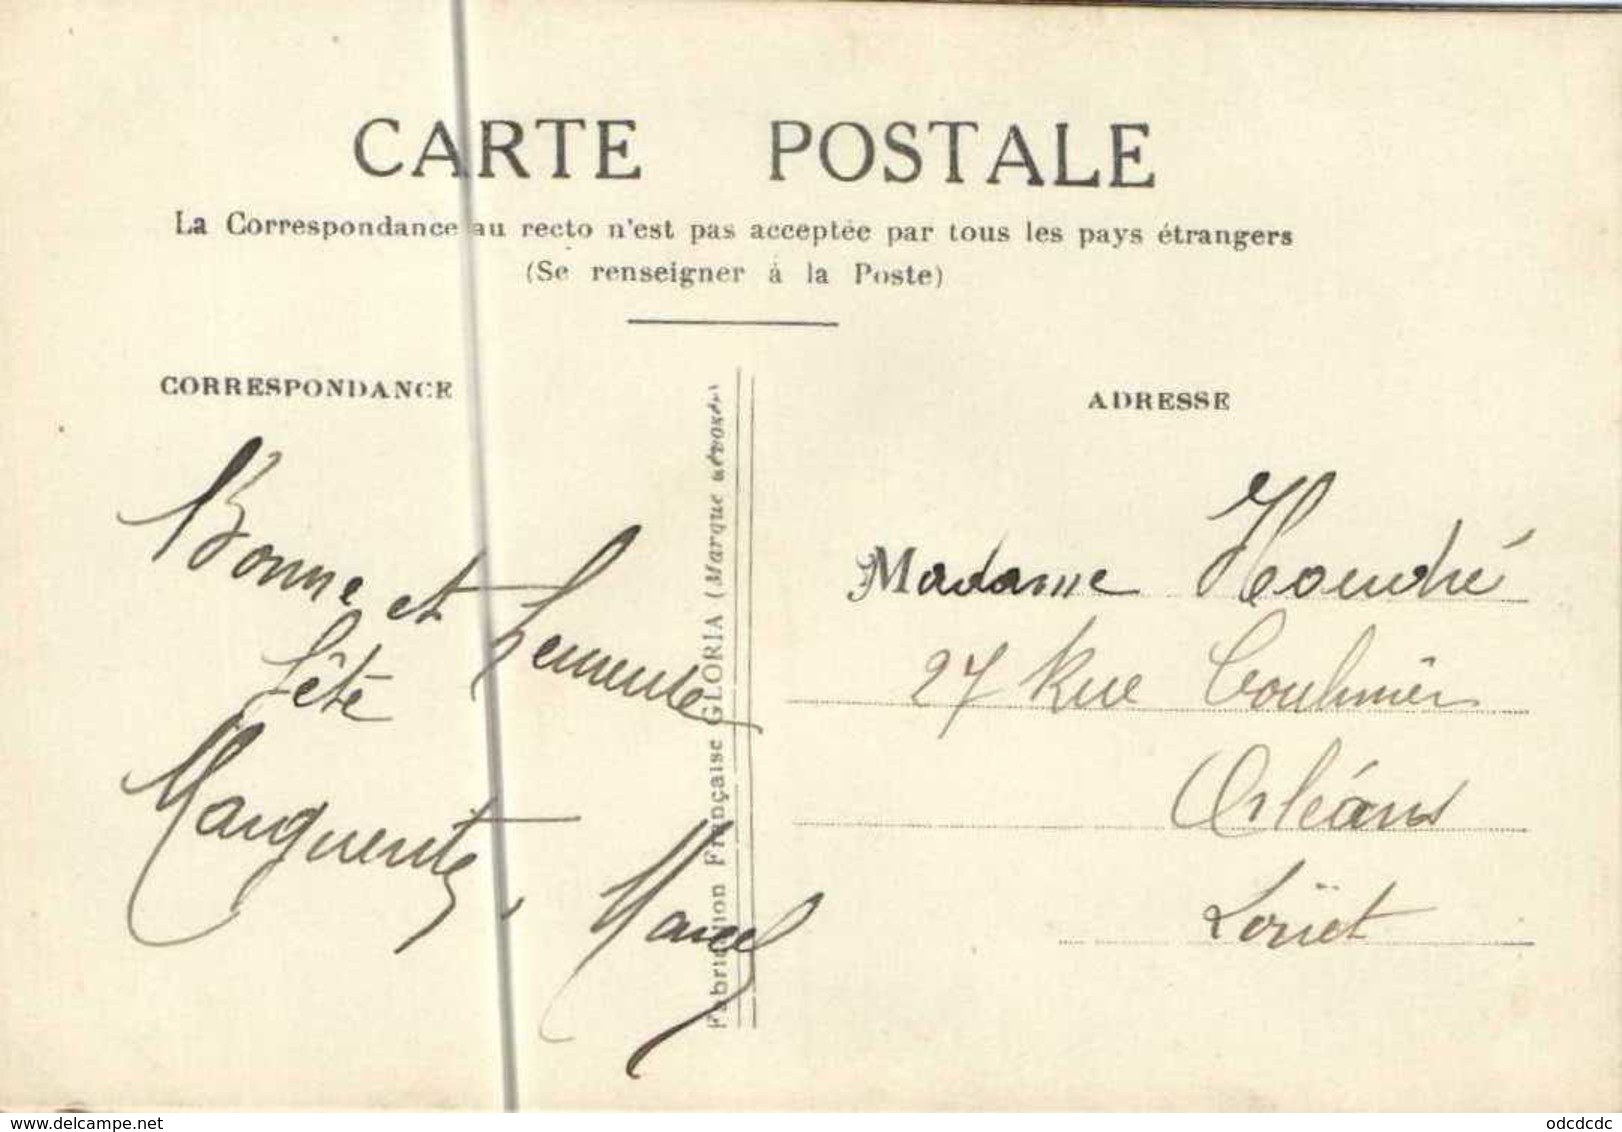 CARTE POSTALE
La Correspondance au recto n'est pas acceptée par tous les pays étrangers
(Se renseigner à la Poste)
CORRESPONDANCE
Bonne et
fête
Marguerite, Marcel
Fabrication Française GLORIA (Marque déposée)
ADRESSE
Madame Houdré
27 Rue Coulmiers
Orléans
Loiret
delcampe.net
odcdcdc